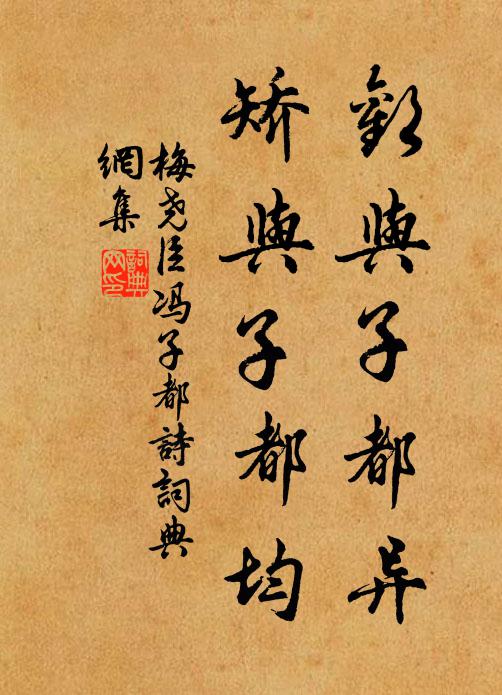 與子都异
矫與子都均
梅尧臣冯子都詩詞典
網集
詞典
网印